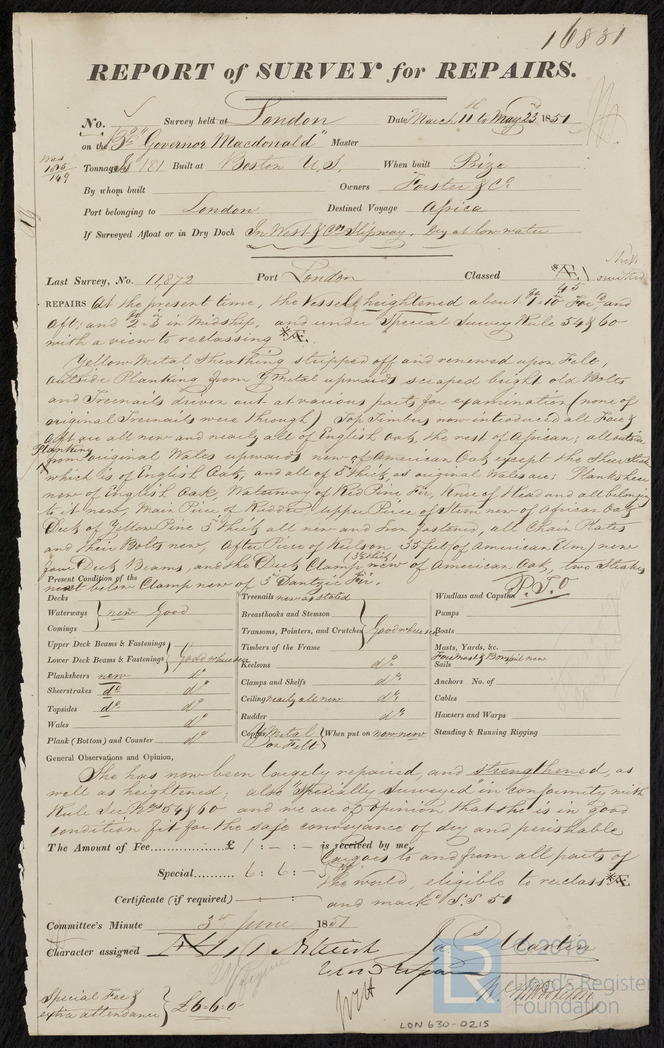 16831
REPORT of SURVEY for REPAIRS.
No. Survey held at London Date March 11th to May 23 1851
on the "Governor Macdonald" Master
Tonnage 181 Built at Boston U.S. When built Prize
By whom built Owners Forster & Co
Port belonging to London Destined Voyage Africa
If Surveyed Afloat or in Dry Dock In West & Co Slipway. Dry at low water
Last Survey, No. 11872 Port London Classed *Æ.1
REPAIRS At the present time, the Vessel heightened about Fore and
Aft; and 2-3 in Midship, and under Special Survey Rule 54 & 60
with a view to reclassing *Æ.
Yellow Metal Sheathing stripped off and renewed upon Felt,
outside Planking from Y Metal upwards scraped bright old Bolts
and Treenails driven out at various parts for examination (none of
original Treenails were through) Top Timbers now introduced all Fore &
Aft are all new and nearly all of English Oak, the rest of African; all
Planking from original Wales upwards new of American Oak except the Sheer Strake
which is of English Oak, and all of 3 thick, as original Wales are; Plank sheer
new of English Oak, Waterway of Red Pine Fir, Knee of Head and all belonging
to it new, Main Piece of Rudder, upper Piece of Stem new of African Oak
Deck of Yellow Pine 3 thick all new and Iron fastened, all Chain Plates
and their Bolts new, After Piece of Keelson, 35 feet of American Elm, new
four Deck Beams, and the Deck Clamp new of American Oak, two Strakes
next below Clamp new of 3 Dantzic Fir.
P.T.O
Present Condition of the
Decks
Waterways new Good
Comings
Upper Deck Beams & Fastenings
Lower Deck Beams & Fastenings Good where seen
Planksheers new do
Sheerstrakes do do
Topsides do do
Wales do
Plank (Bottom) and Counter do
Treenails new as stated
Breasthooks and Stemson
Transoms, Pointers, and Crutches Good where seen
Timbers of the Frame
Keelsons do
Clamps and Shelfs do
Ceiling nearly all new do
Rudder do
Copper Y Metal on Felt (When put on now new
Windlass and Capstan
Pumps
Boats
Masts, Yards, &c. Foremast & Bowsprit new
Sails
Anchors No. of
Cables
Hawsers and Warps
Standing & Running Rigging
General Observations and Opinion,
She has now been largely repaired, and strengthened, as
well as heightened; also "Specially Surveyed" in conformity with
Rule Sec 54 & 60 and we are of opinion that she is in good
condition fit for the safe conveyance of dry and perishable
The Amount of Fee £ 1 : - : - is received by me,
Cargoes to and from all parts of
Special 6 : 6 : -
the world, eligible to reclass *Æ
Certificate (if required) and mark S.S 51
Committee's Minute 3rd June 1851
Character assigned
Jas Martin
Special Fee &
extra attendance £6=6=0
LON 630-0215
© 2019
Lloyd's Register
Foundation
LR